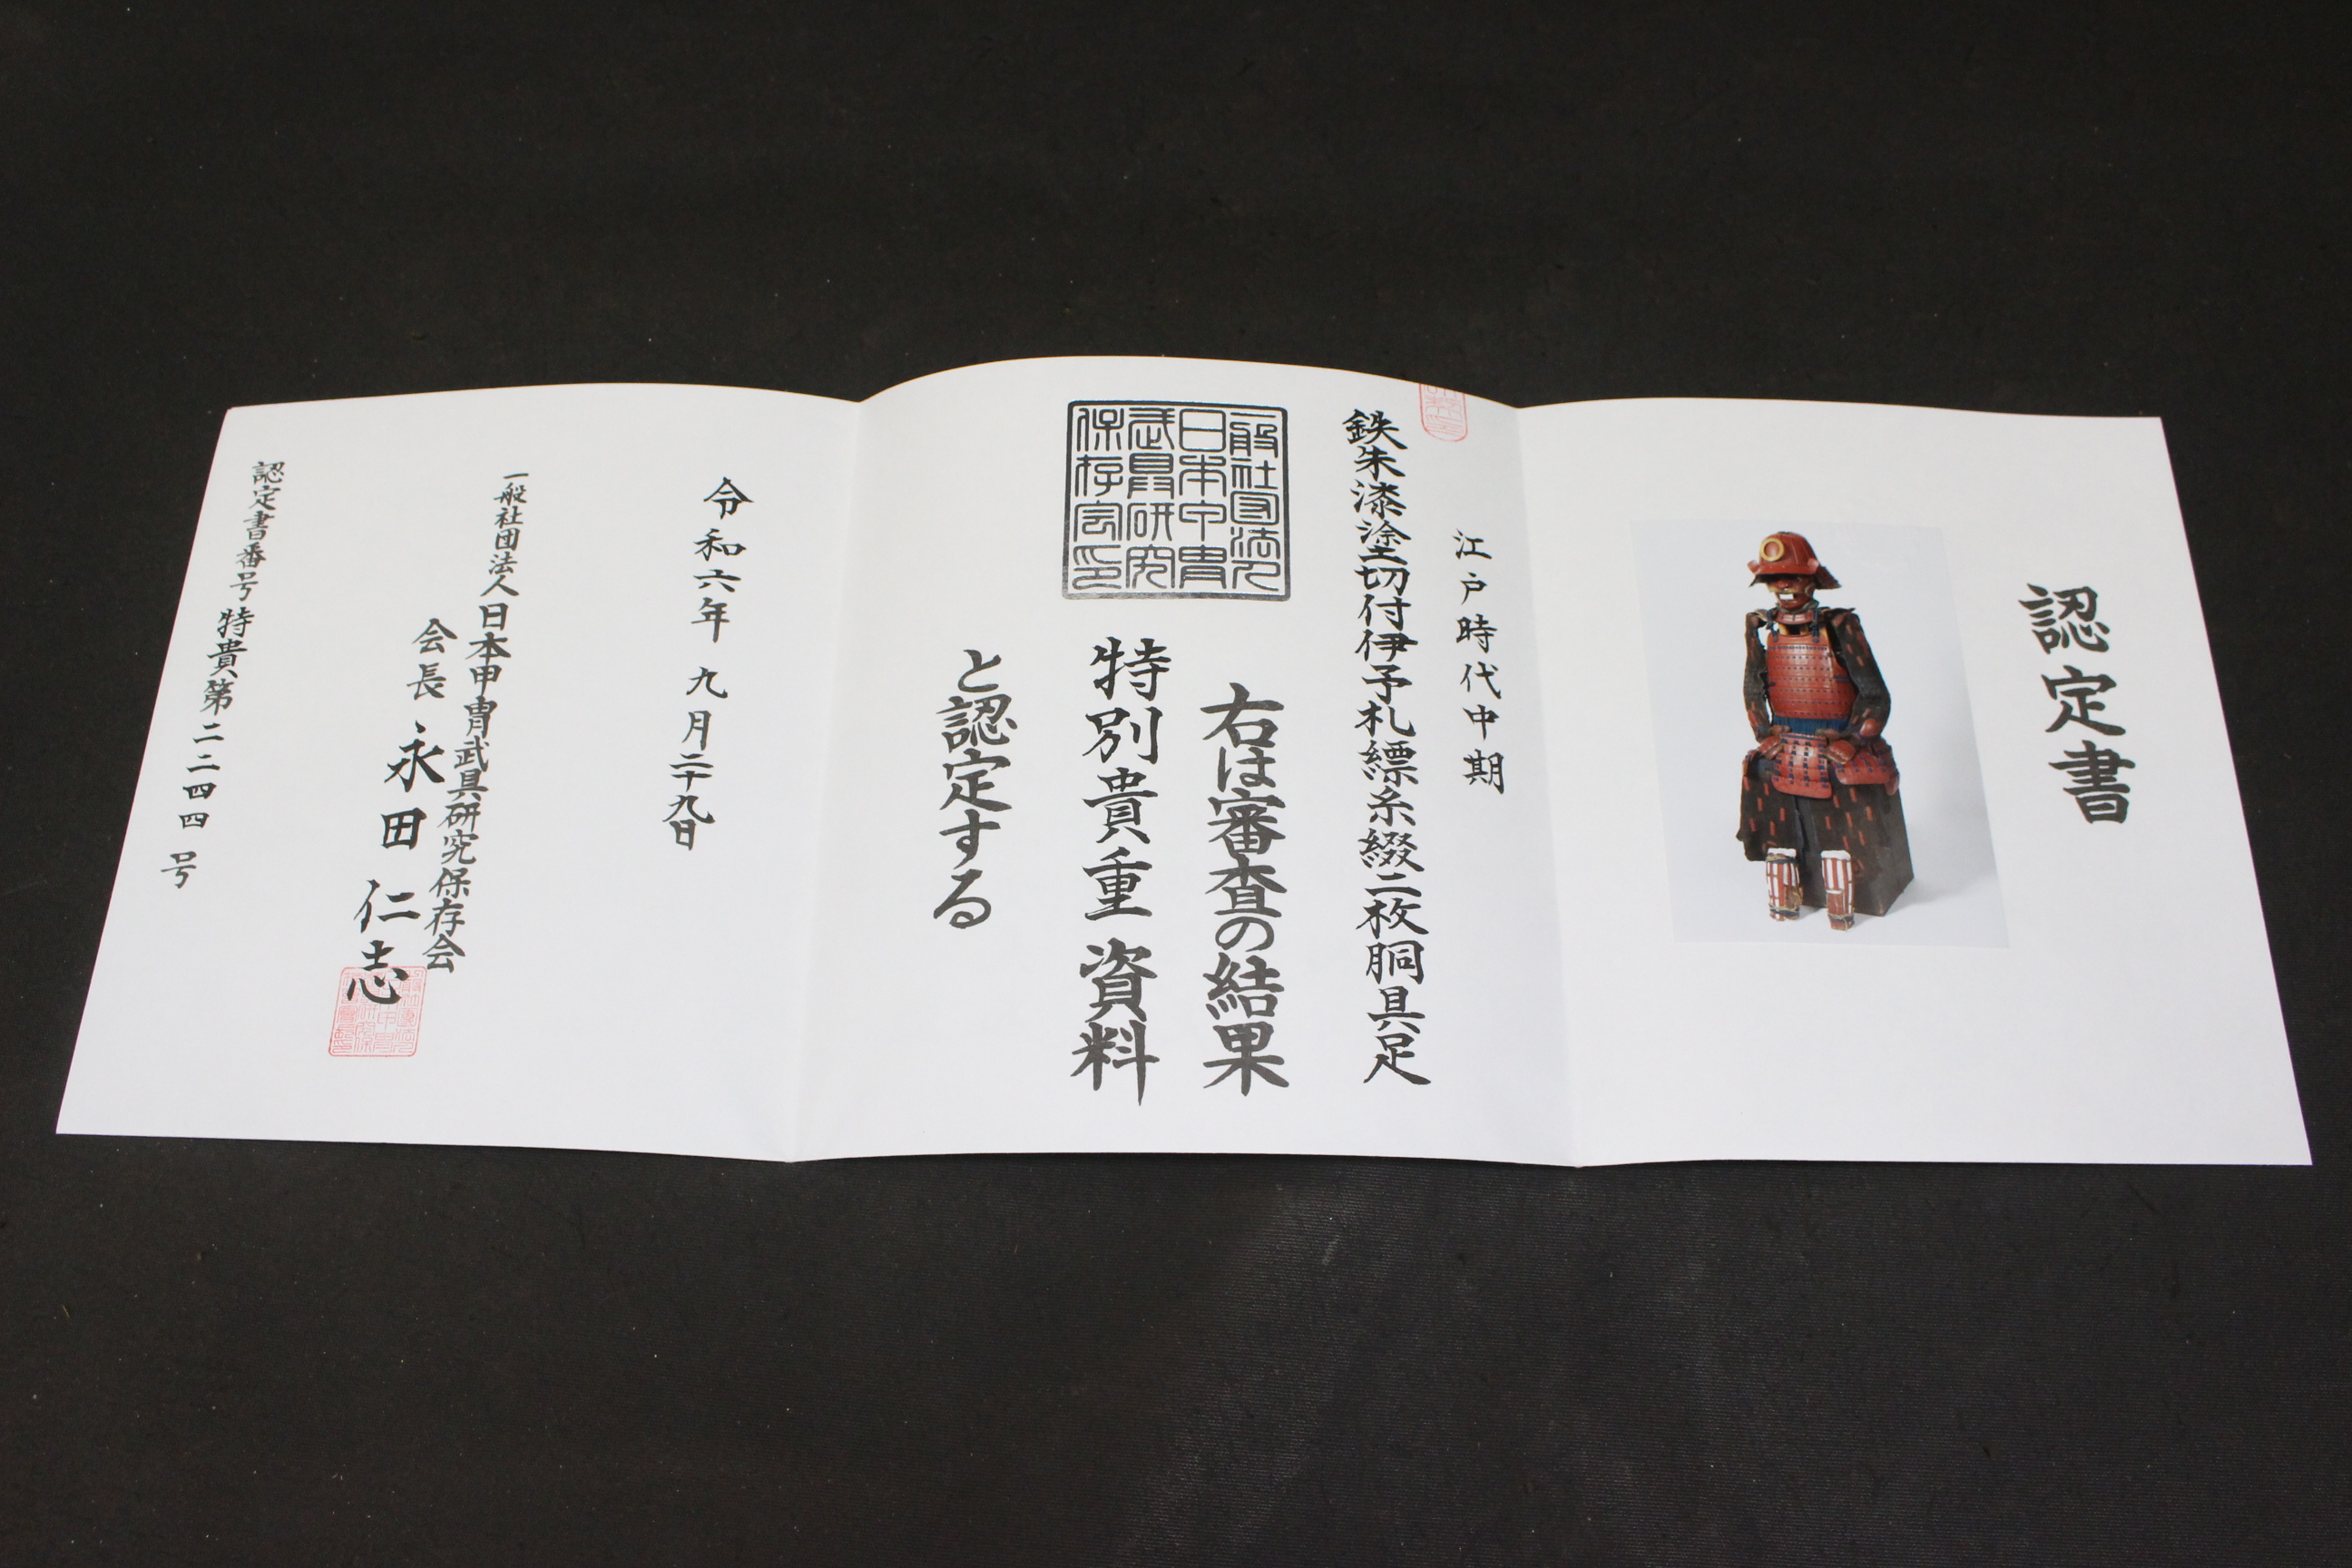 認定書
江戸時代中期
鉄朱漆塗切付伊予札縹糸綴二枚胴具足
右は審査の結果
特別貴重資料
と認定する
一般社団法人
日本甲冑
武具研究
保存会印
令和六年 九月二十九日
一般社団法人日本甲冑武具研究保存会
会長 永田仁志
認定書番号特貴第二二四四号